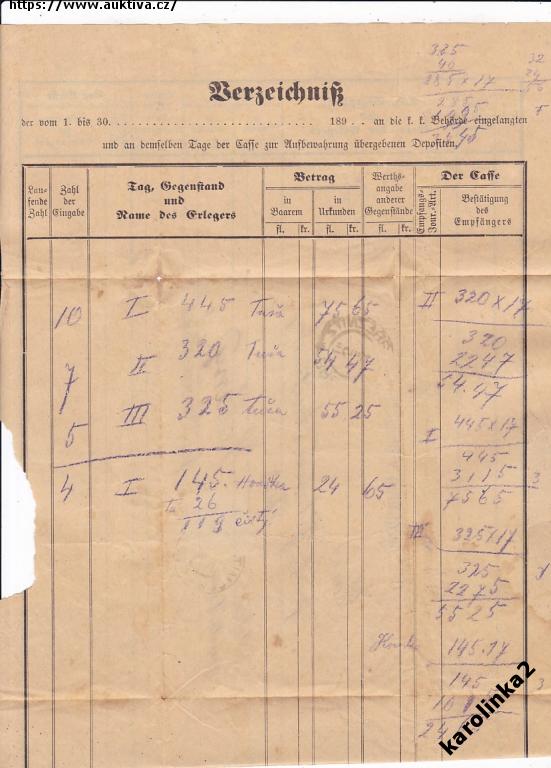 https://www.auktiva.cz/
325
40
285 x 17
32
24
Verzeichniß
der vom 1. bis 30. 189 . . an die k. k. Behörde eingelangten
und an demselben Tage der Casse zur Aufbewahrung übergebenen Depositen.
Laufende Zahl
Zahl der Eingabe
Tag, Gegenstand und Name des Erlegers
Betrag
in Baarem
in Urkunden
Werthsangabe anderer Gegenstände
Der Casse
Empfangs-Jour.-Art.
Bestätigung des Empfängers
fl. kr. fl. kr. fl. kr.
10 I 445 Tuša 75 65
7 II 320 Tuša 54 47
5 III 325 Tuša 55 25
4 I 145. 24 65
26
119 čistý
II 320 x 17
320
2247
54.47
I 445 x 17
445
3115
7565
III 325 x 17
325
2275
5525
145.17
145
10
24
karolinka2